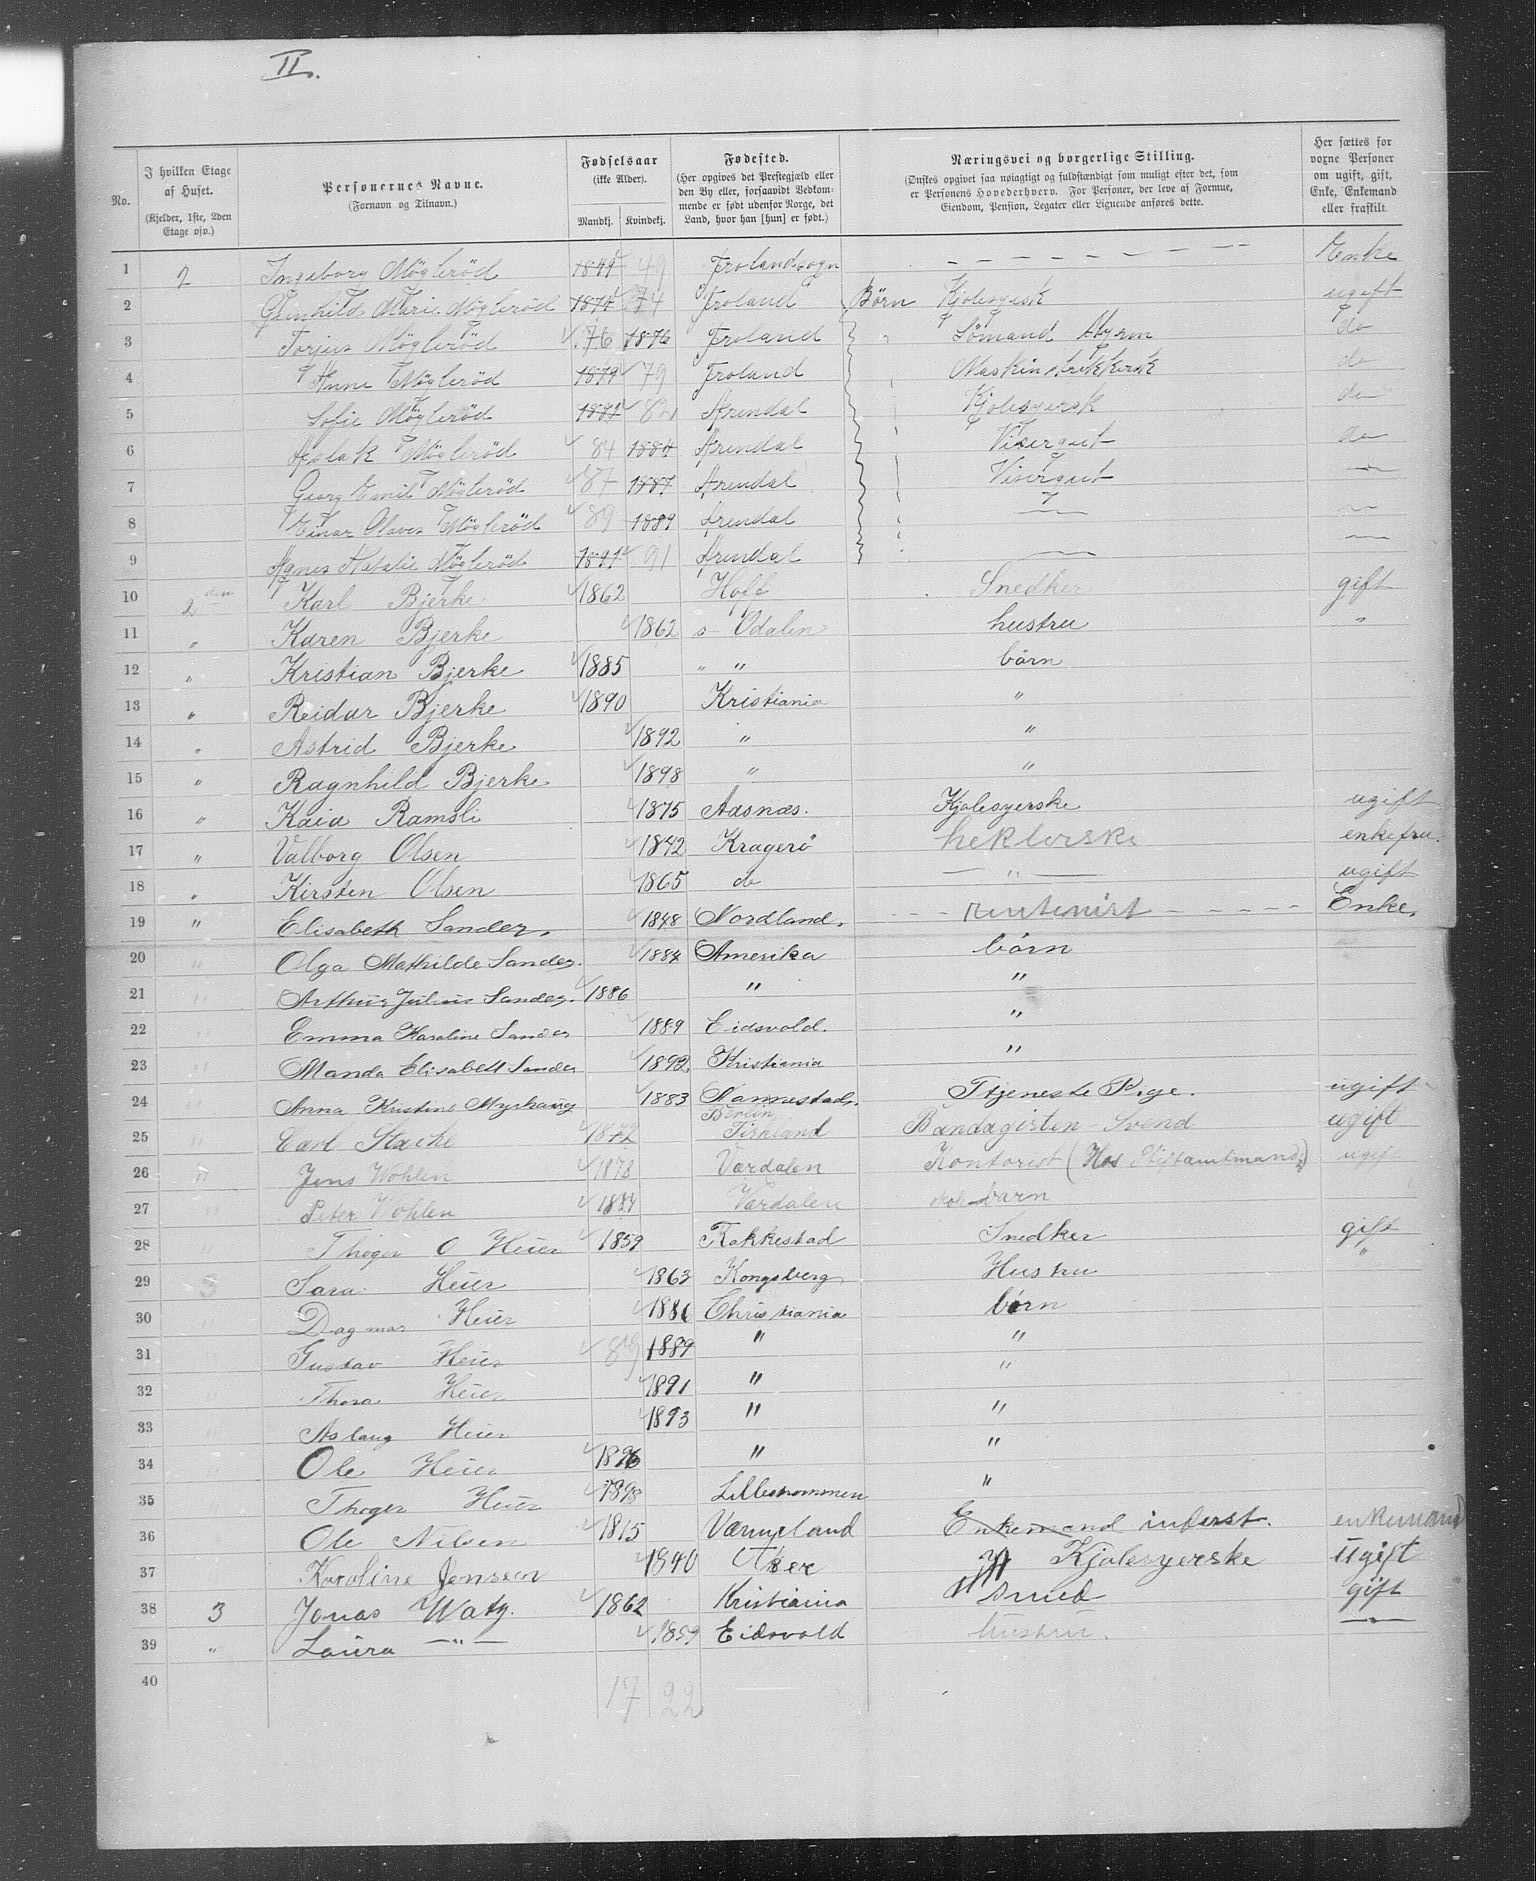 II.
No. | I hvilken Etage af Huset. (Kjelder, 1ste, 2den Etage osv.) | Personernes Navne. (Fornavn og Tilnavn.) | Fødselsaar (ikke Alder). Mandkj. Kvindekj. | Fødested. (Her opgives det Prestegjæld eller den By eller, forsaavidt Vedkommende er født udenfor Norge, det Land, hvor han [hun] er født.) | Næringsvei og borgerlige Stilling. (Ønskes opgivet saa nøiagtigt og fuldstændigt som muligt efter det, som er Personens Hovederhverv. For Personer, der leve af Formue, Eiendom, Pension, Legater eller Lignende anføres dette. | Her sættes for voxne Personer om ugift, gift, Enke, Enkemand eller fraskilt.
1 2 Ingeborg Møglerød 1849 49 Frolandsogn — Enke
2 Gunhild Marie Møglerød 1874 74 Froland Børn Kjolesyersk ugift
3 Torjus Møglerød 76 1876 Froland " Sømand Styrm do
4 Anne Møglerød 1879 79 Froland Maskinstrikkersk do
5 Sofie Møglerød 1882 82 Arendal Kjolesyersk do
6 Aslak Møglerød 84 1884 Arendal Visergut do
7 Georg Emil Møglerød 87 1887 Arendal Visergut —"—
8 Einar Olaves Møglerød 89 1889 Arendal —
9 Agnes Natalie Møglerød 1891 91 Arendal —
10 2den Karl Bjerke 1862 Hoff Snedker gift
11 " Karen Bjerke 1862 s- Odalen hustru "
12 " Kristian Bjerke 1885 " " børn
13 " Reidar Bjerke 1890 Kristiania "
14 " Astrid Bjerke 1892 " "
15 " Ragnhild Bjerke 1898 " "
16 " Kaia Ramsli 1875 Aasnæs. Kjolesyerske ugift
17 " Valborg Olsen 1842 Kragerø heklerske enkefru.
18 " Kirsten Olsen 1865 do —"— ugift
19 " Elisabeth Sander. 1848 Nordland. rentenist Enke.
20 " Olga Mathilde Sander. 1884 Amerika børn
21 " Arthur Julius Sander. 1886 " "
22 " Emma Karoline Sander 1889 Eidsvold. "
23 " Manda Elisabett Sander 1892 Khristiania "
24 " Anna Kristine Myrhaug 1883 Nannestad. Ttjeneste Pige. ugift
25 " Carl Stache 1872 Berlin Tiskland Bandagisten-Svend ugift
26 " Jens Wohlen 1873 Værdalen Kontorist (Hos Stiftamtmand) ugift
27 " Peter Wohlen 1884 Værdalen barn
28 Thoger O Heier 1859 Rakkestad Snedker gift
29 Sara Heier 1863 Kongsberg Hustru "
30 Dagmar Heier 1886 Christiania børn
31 Gustav Heier 89 1889 " "
32 Thora Heier 1891 " "
33 Aslaug Heier 1893 " "
34 Ole Heier 1896 " "
35 Thoger Heier 1898 Lillestrømmen "
36 Ole Nilsen 1815 Værmeland Enkemand inderst. enkemand
37 Karoline Jensen 1840 Aker Kjolesyerske ugift
38 3 Jonas Watz. 1862 Kristiania Smed gift
39 " Laura —"— 1859 Eidsvold hustru. —"—
40
17 22